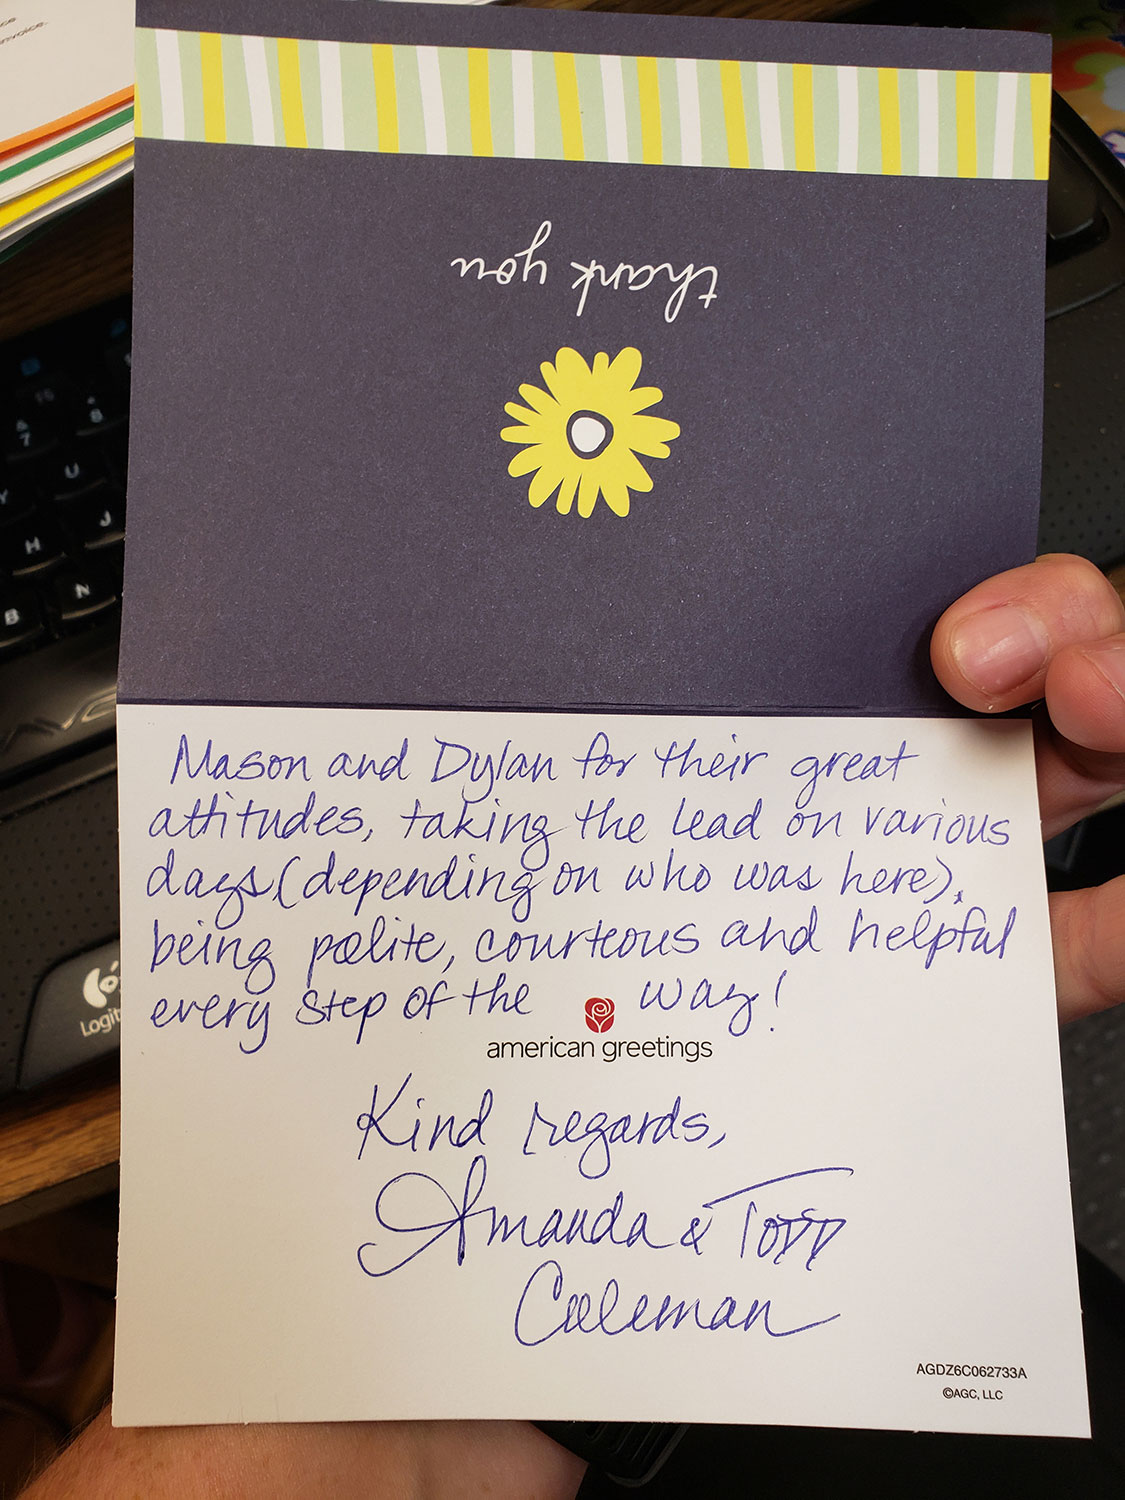 thank you
Mason and Dylan for their great
attitudes, taking the lead on various
days (depending on who was here),
being polite, courteous and helpful
every step of the way!
american greetings
Kind regards,
Amanda & Todd
Coleman
AGDZ6C062733A
©AGC, LLC
invoice.
7
8
Y
U
H
J
B
N
Logit